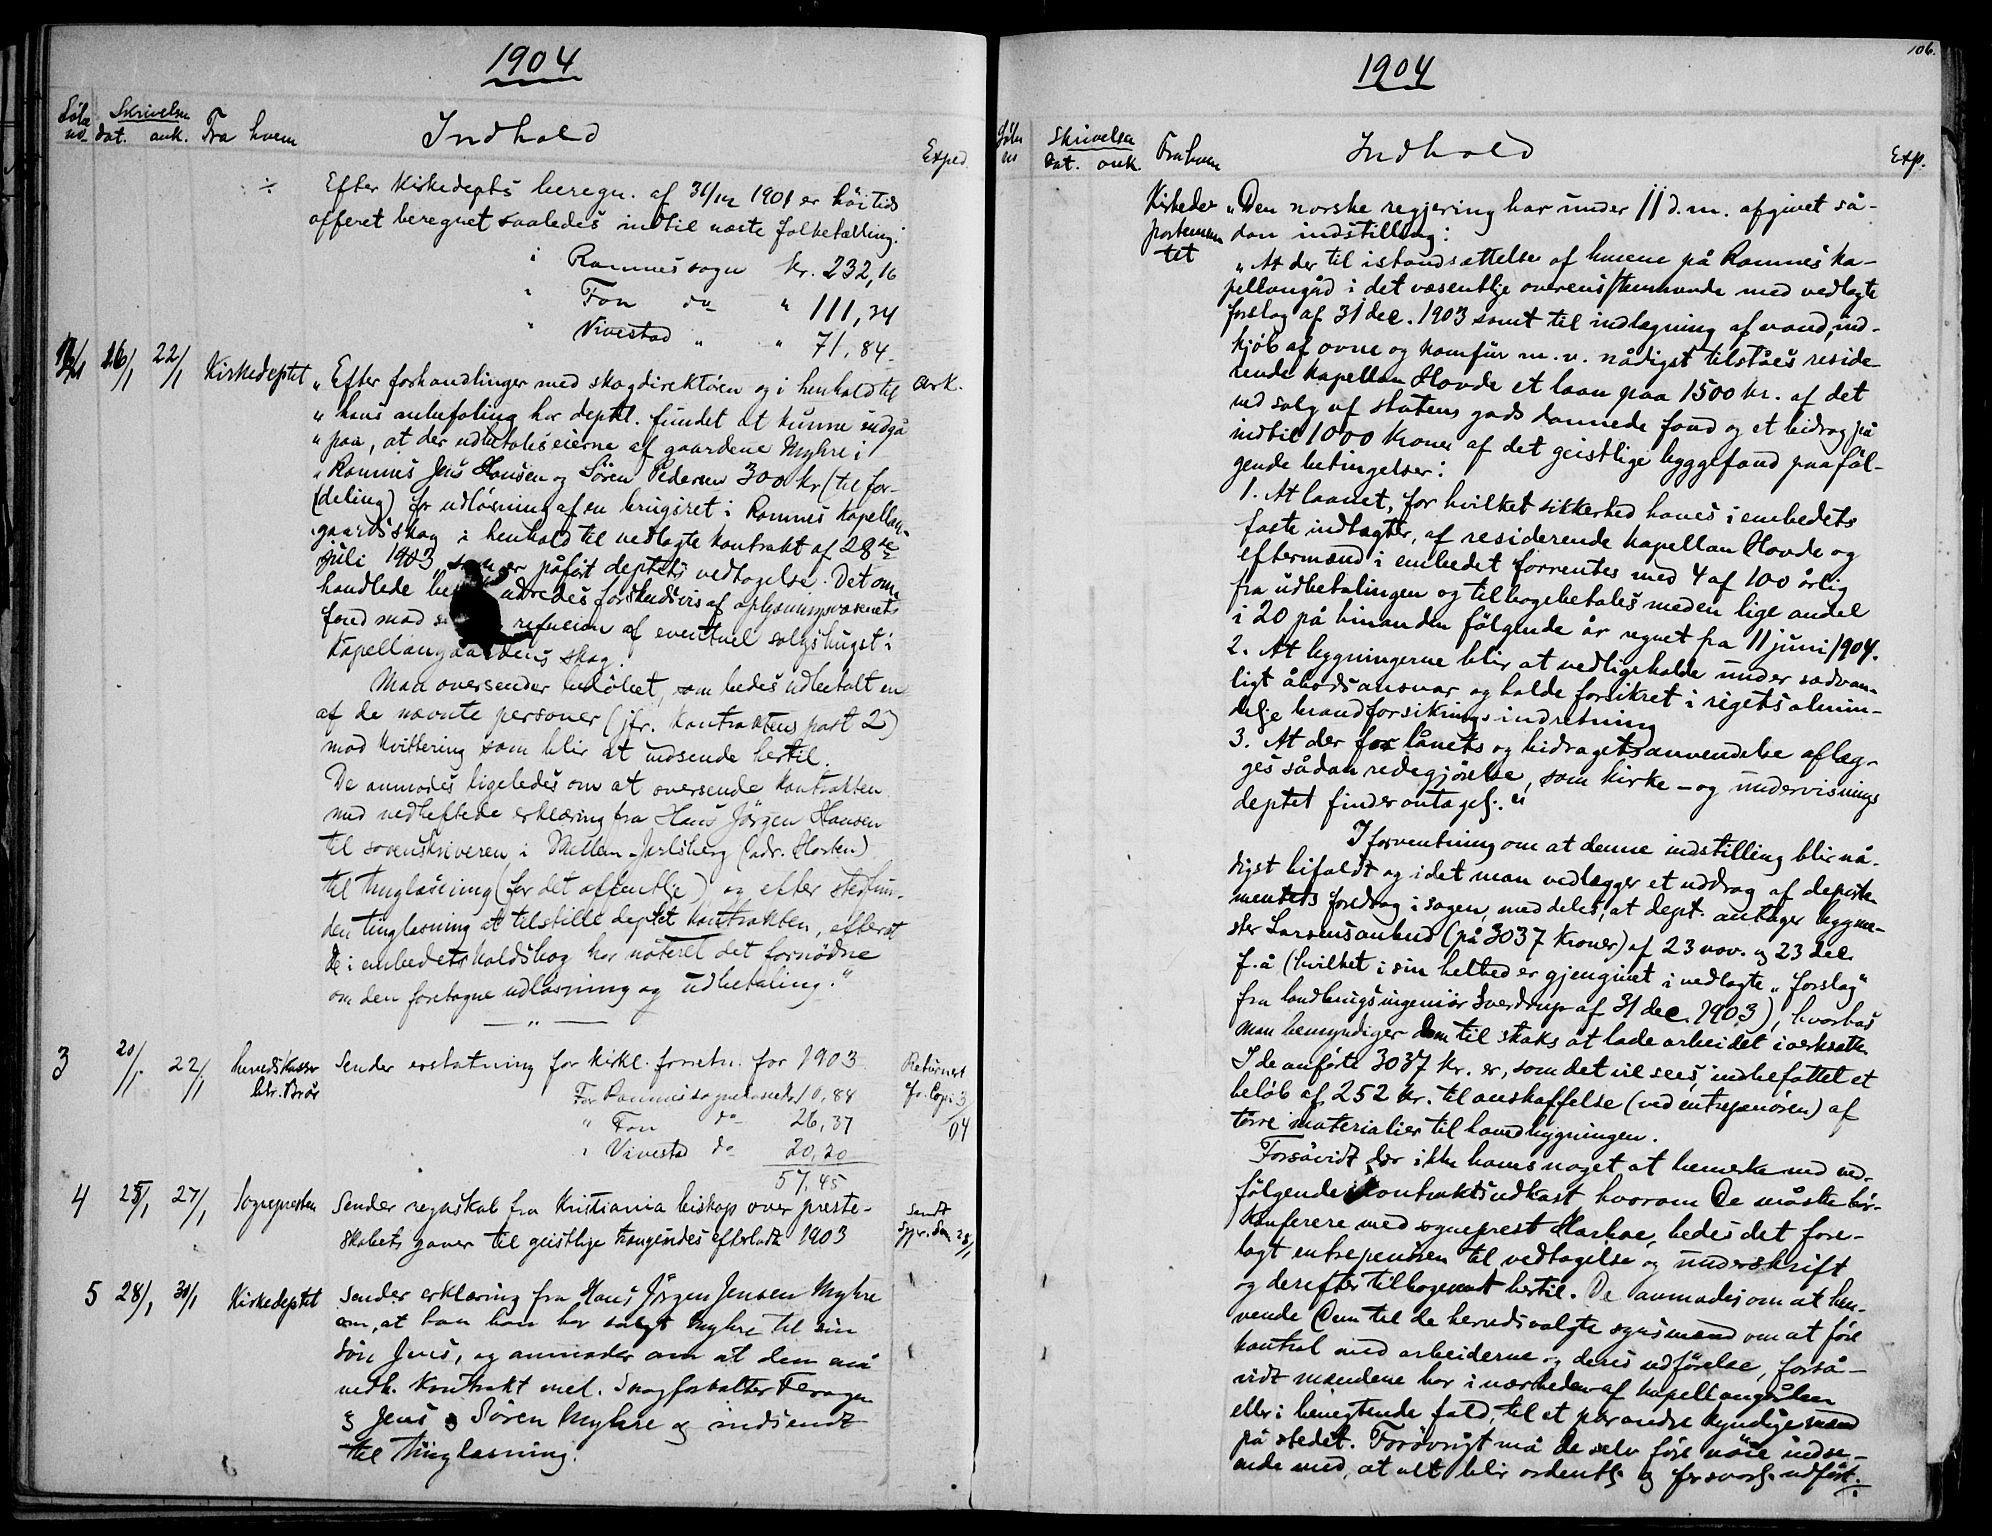 1904
Løbe Skrivelsen
no. dat. ank. Fra hvem Indhold Exped.
÷ Efter Kirkedepts beregn. af 31/12 1901 er høitids
offeret beregnet saaledes indtil næste folketælling:
i Ramnes sogn kr. 232,16
" Fon do " 111,34
" Vivestad " " 71,84
16/1 22/1 Kirkedeptet „Efter forhandlinger med skogdirektøren og i henhold til Ark.
" hans anbefaling har deptet. fundet at kunne indgå
" paa, at der udbetales eierne af gaardene Myhre i
„Ramnes Jens Hansen og Søren Pedersen 300 kr (til for-
(deling) for udløsning af en brugsret i Ramnes Kapellan-
gaards skog i henhold til vedlagte kontrakt af 28de
juli 1903, som er påført deptets vedtagelse. Det om-
handlede udredes forskudsvis af oplysningsvæsenets
fond mod refusion af eventuel salgshugst i
Kapellangaardens skog.
Man oversender beløbet, som bedes udbetalt en
af de nævnte personer (jfr. Kontraktens post 2)
mod kvittering som blir at indsende hertil.
De anmodes ligeledes om at oversende kontrakten
med vedheftede erklæring fra Hans Jörgen Hansen
til sorenskriveren i Mellem-Jarlsberg (adr. Horten)
til tinglæsning (for det offentlige) og efter stedfun-
den tinglæsning at tilstille deptet kontrakten, efterat
De i embedets kaldsbog har noteret det fornødne
om den foretagne udløsning og udbetaling."
— „ —
3 20/1 22/1 herredskasser Sender erstatning for kirkl. forretn. for 1903 Returnert
Br. Brår For Ramnes sogn 10,88 cfr. Copi 3/
" Fon do 26,37 04
" Vivestad do 20,20
57,45
4 25/1 27/1 Sognepresten Sender regnskab fra Kristiania biskop over preste- Sendt
skabets gaver til geistlige trængendes efterladte 1903 28/1
5 28/1 30/1 Kirkedeptet Sender erklæring fra Hans Jörgen Jensen Myhre
om, at han har solgt Myhre til sin
søn Jens, og anmoder om at den må
vedh. kontrakt mel. Skogforvalter Feragen
og Jens og Søren Myhre og indsendt
til tinglæsning.
106.
1904
Løbe Skrivelsen
no dat. ank. Fra hvem Indhold Exp.
Kirkede- „Den norske regjering har under 11 d.m. afgivet så-
partemen- dan indstilling:
tet „At der til istandsættelse af husene på Ramnes ka-
pellangård i det væsentlige overensstemmende med vedlagte
forslag af 31 dec. 1903 samt til indlægning af vand, ind-
kjøb af ovne og komfur m. v. nådigst tilståes reside-
rende kapellan Hovde et laan paa 1500 kr. af det
ved salg af statens gods dannede fond og et bidrag på
indtil 1000 kroner af det geistlige byggefond paa føl-
gende betingelser:
1. At laanet, for hvilket sikkerhed haves i embedets
faste indtægter, af residerende kapellan Hovde og
eftermænd i embedet forrentes med 4 af 100 årlig
fra udbetalingen og tilbagebetales med en lige andel
i 20 på hinanden følgende år regnet fra 11 juni 1904.
2. At bygningerne blir at vedligeholde under sædvan-
ligt åbodsansvar og holde forsikret i rigets almin-
delige brandforsikrings-indretning
3. At der for lånets og bidragets anvendelse aflæg-
ges sådan redegjørelse, som kirke- og undervisnings
deptet finder antagel."
I forventning om at denne indstilling blir nå-
digst bifaldt og idet man vedlægger et uddrag af departe-
mentets foredrag i sagen, meddeles, at dept. antager bygme-
ster Larsens anbud (på 3037 kroner) af 23 nov. og 23 dec.
f. å (hvilket i sin helhed er gjengivet i vedlagte „forslag"
fra landbrugsingeniør Sverdrup af 31 dec. 1903), hvorhos
man bemyndiger Dem til straks at lade arbeidet iverksætte
I de anførte 3037 kr. er, som det vil sees, indbefattet et
beløb af 252 kr. til anskaffelse (ved entreprenøren) af
tørre materialier til hovedbygningen.
Forsåvidt der ikke haves noget at bemerke ved ved-
følgende kontraktsudkast hvorom De måske bør
konferere med sogneprest Harboe, bedes det fore-
lagt entreprenøren til vedtagelse og underskrift
og derefter tilbagesendt hertil. De anmodes om at hen-
vende Dem til de herredsvalgte synsmænd om at føre
kontrol med arbeiderne og deres udførelse, forså-
vidt mændene bor i nærheden af kapellangården
eller i benegtende fald, til et par andre kyndige mænd
på stedet. Forøvrigt må De selv føre nøie indse-
ende med, at alt blir ordentl. og forsvarl. udført.